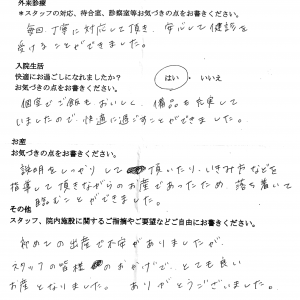 外来診療
＊スタッフの対応、待合室、診察室等お気づきの点をお書きください。
毎回丁寧に対応して頂き、安心して健診を
受けることができました。
入院生活
快適にお過ごしになれましたか？ はい ・ いいえ
お気づきの点をお書きください。
個室でご飯もおいしく、備品も充実して
いましたので、快適に過ごすことができました。
お産
お気づきの点をお書きください。
説明をしっかりして頂いたり、いきみ方などを
指導して頂きながらのお産であったため、落ち着いて
臨むことができました。
その他
スタッフ、院内施設に関するご指摘やご要望などご自由にお書きください。
初めての出産で不安がありましたが、
スタッフの皆様のおかげで、とても良い
お産となりました。ありがとうございました。